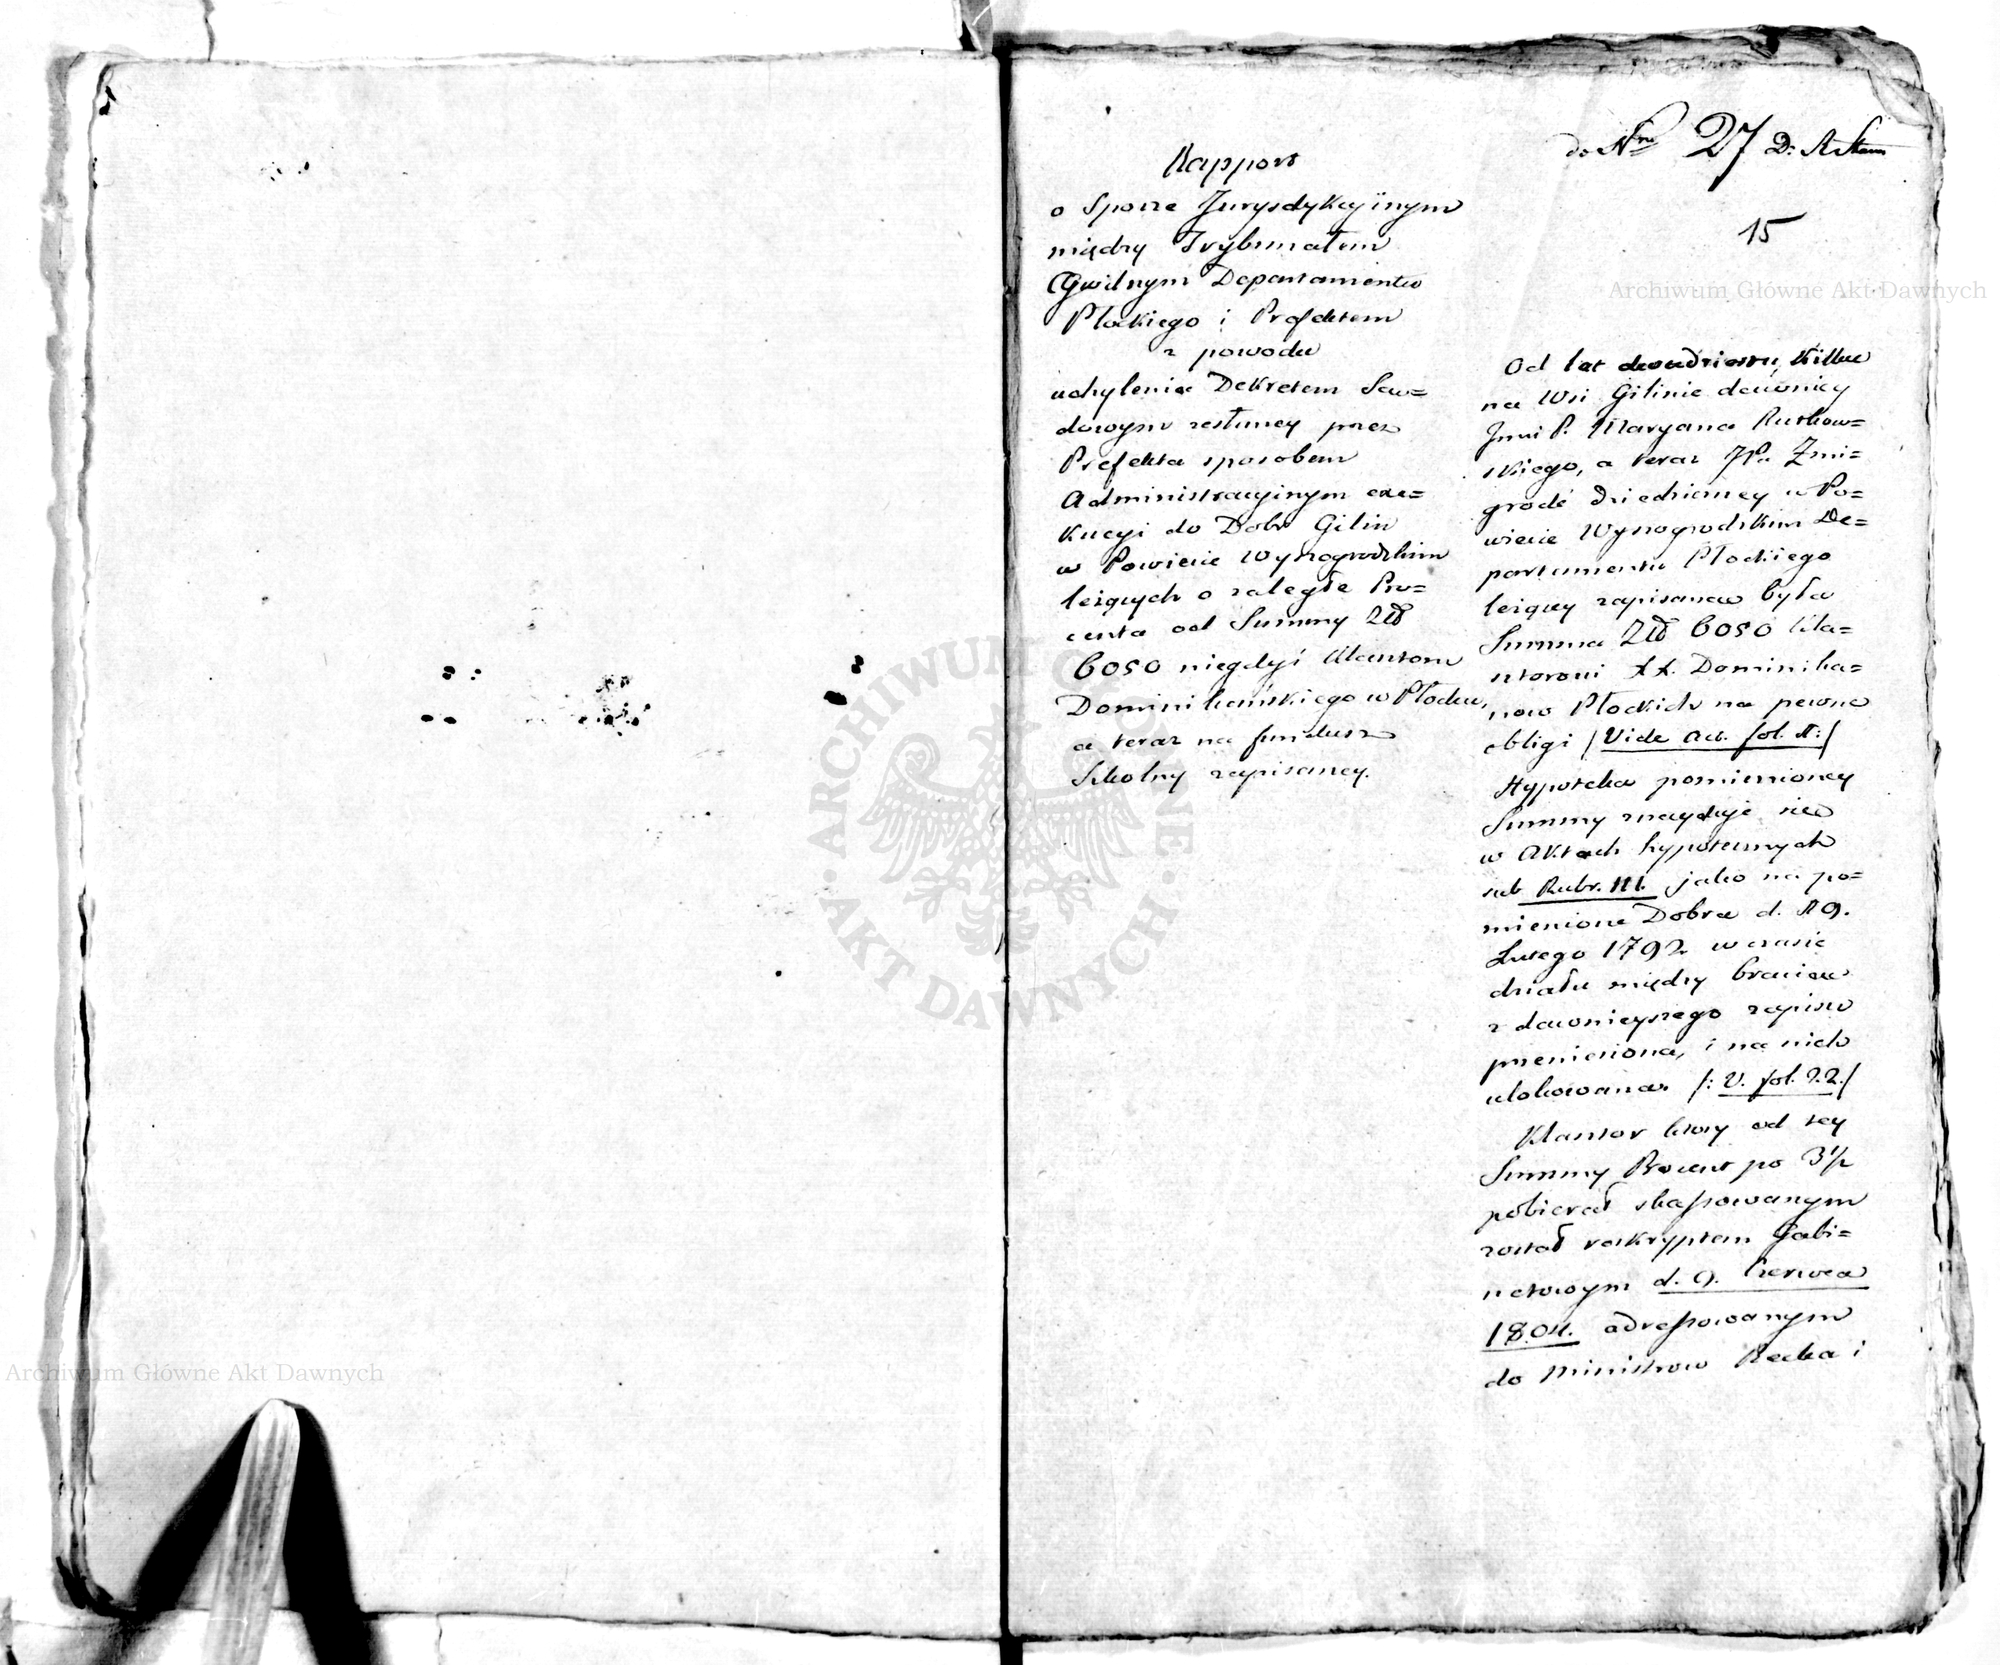 do Nru 27 D. R. Stanu
15
Rapport
o Sporze Jurysdykcyinym
między Trybunałem
Cywilnym Departamentu
Płockiego i Prefektem
z powodu
uchylenia Dekretem Są=
dowym zesłaney przez
Prefekta sposobem
Administracyinym exe=
kucyi do Dobr Gilin
w Powiecie Wyszogrodzkim
leżących o zaległe Pro=
centa od Summy Złł
6050 niegdyś Klasztoru
Dominikańskiego w Płocku,
a teraz na fundusz
Szkolny zapisaney.
Od lat dwudziestu, kilku
na Wsi Gilinie dawniey
Jmci P. Maryana Rutkow=
skiego, a teraz JPa Żmi=
grodć dziedziczney w Po=
wiecie Wyszogrodzkim De=
partamentu Płockiego
leżący zapisana była
Summa Złł 6050 Kla=
sztorowi XX. Dominika=
now Płockich na pewne
obligi /Vide Act. fol. 4:/
Hypoteka pomienioney
Summy znayduje się
w Aktach hypotecznych
sub Rubr. III. jako na po=
mienione Dobra d. 19.
Lutego 1792 w czasie
działu między bracią
z dawnieyszego zapisu
przeniesiona, i na nich
ulokowana. /: V. fol. 22./
Klasztor ktory od tey
Summy Procent po 3½
pobierał skassowanym
został reskryptem Gabi=
netowym d. 9. Czerwca
1804. adressowanym
do Ministrow Recka i
Archiwum Główne Akt Dawnych
Archiwum Główne Akt Dawnych
ARCHIWUM GŁÓWNE · AKT DAWNYCH ·